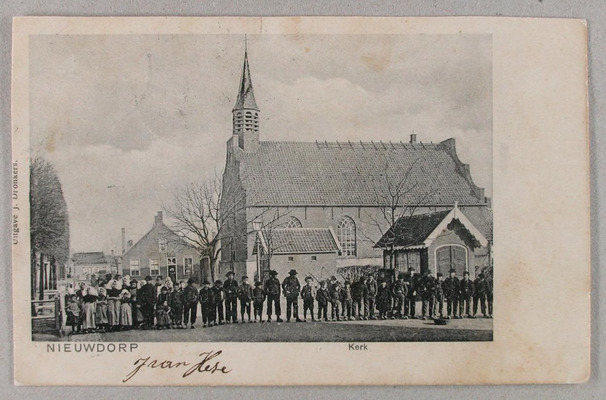 Uitgave J. Dronkers.
NIEUWDORP
Kerk